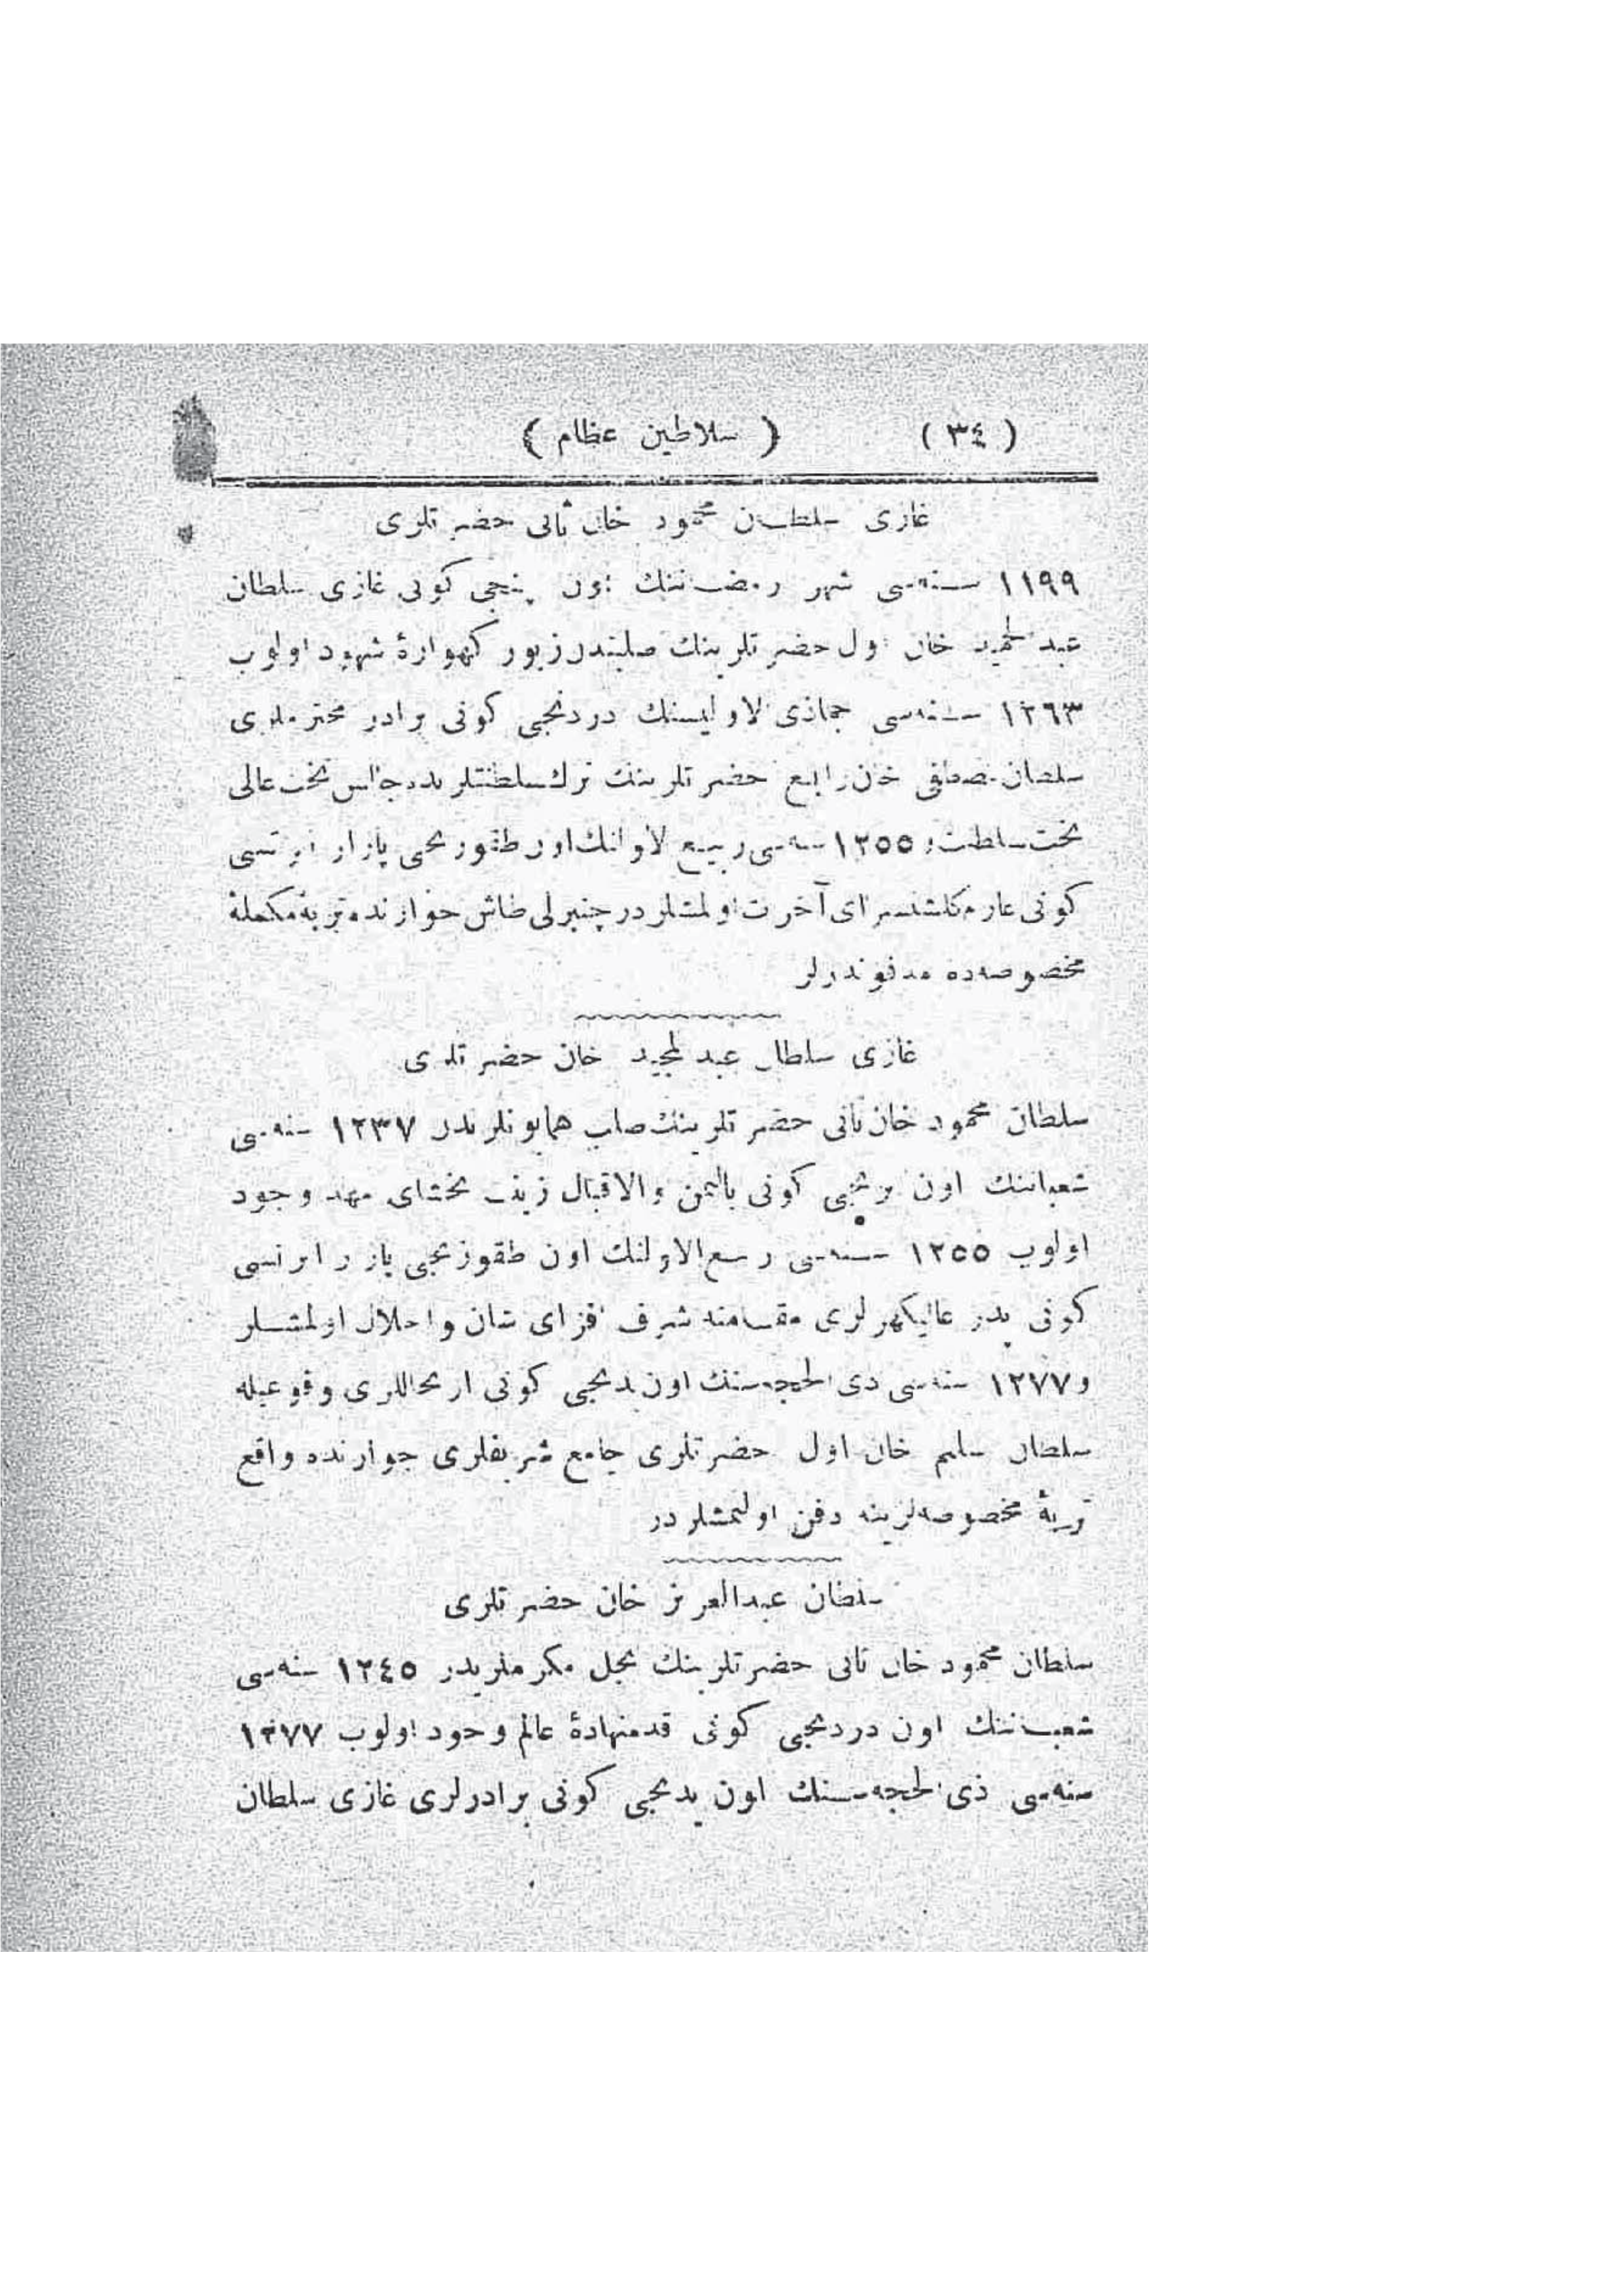 ( ٣٤ ) ( سلاطين عظام )
غازى سلطان محمود خان ثانى حضرتلرى
١١٩٩ سنه‌سى شهر رمضاننك اون پنجى كونى غازى سلطان
عبد الحميد خان اول حضرتلرينك صلبندن زيور كهوارۀ شهود اولوب
١٢٦٣ سنه‌سى جماذى الاوليسنك دردنجى كونى برادر محترملرى
سلطان مصطفى خان رابع حضرتلرينك ترك سلطنتلريله جالس تخت عالى
بخت سلطنت و ١٢٥٥ سنه‌سى ربيع الاولنك اون طقوزنجى پازار ايرتسى
كونى عازم كلشنسراى آخرت اولمشلردر چنبرلى طاش جوارنده تربۀ مكملۀ
مخصوصه‌ده مدفوندرلر
غازى سلطان عبد المجيد خان حضرتلرى
سلطان محمود خان ثانى حضرتلرينك صلب همايونلريدر ١٢٣٧ سنه‌سى
شعباننك اون برنجى كونى باليمن والاقبال زينت بخشاى مهد وجود
اولوب ١٢٥٥ سنه‌سى ربيع الاولنك اون طقوزنجى پازار ايرتسى
كونى پدر عاليكهرلرى مقامنه شرف افزاى شان واجلال اولمشلر
و ١٢٧٧ سنه‌سى ذى الحجه‌سنك اون يدنجى كونى ارتحاللرى وقوعيله
سلطان سليم خان اول حضرتلرى جامع شريفلرى جوارنده واقع
تربۀ مخصوصه‌لرينه دفن اولنمشلردر
سلطان عبدالعزيز خان حضرتلرى
سلطان محمود خان ثانى حضرتلرينك نجل مكرملريدر ١٢٤٥ سنه‌سى
شعباننك اون دردنجى كونى قدمنهادۀ عالم وجود اولوب ١٢٧٧
سنه‌سى ذى الحجه‌سنك اون يدنجى كونى برادرلرى غازى سلطان